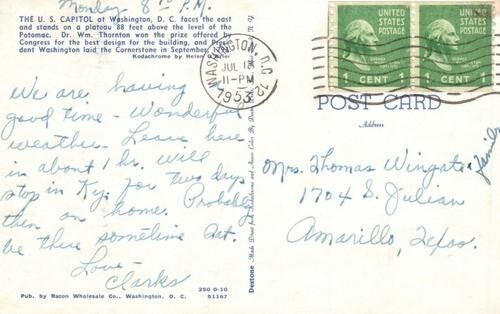 Monday 8 P.M.
THE U. S. CAPITOL at Washington, D. C. faces the east
and stands on a plateau 88 feet above the level of the
Potomac. Dr. Wm. Thornton won the prize offered by
Congress for the best design for the building, and Presi-
dent Washington laid the Cornerstone in September,
Kodachrome by Helen
We are having
good time - Wonderful
weather. Leave here
in about 1 hr. will
stop in Ky. for two days
then on home. Probably
be there sometime Sat.
Love -
Clarks
250 D-10
Pub. by Racon Wholesale Co., Washington, D. C. 51167
Dextone
WASHINGTON, D.C. 12
JUL 13
11-PM
1953
UNITED STATES POSTAGE
1 CENT 1
UNITED STATES POSTAGE
1 CENT 1
POST CARD
Address
Mrs. Thomas Wingate & Family
1704 S. Julian
Amarillo, Texas.